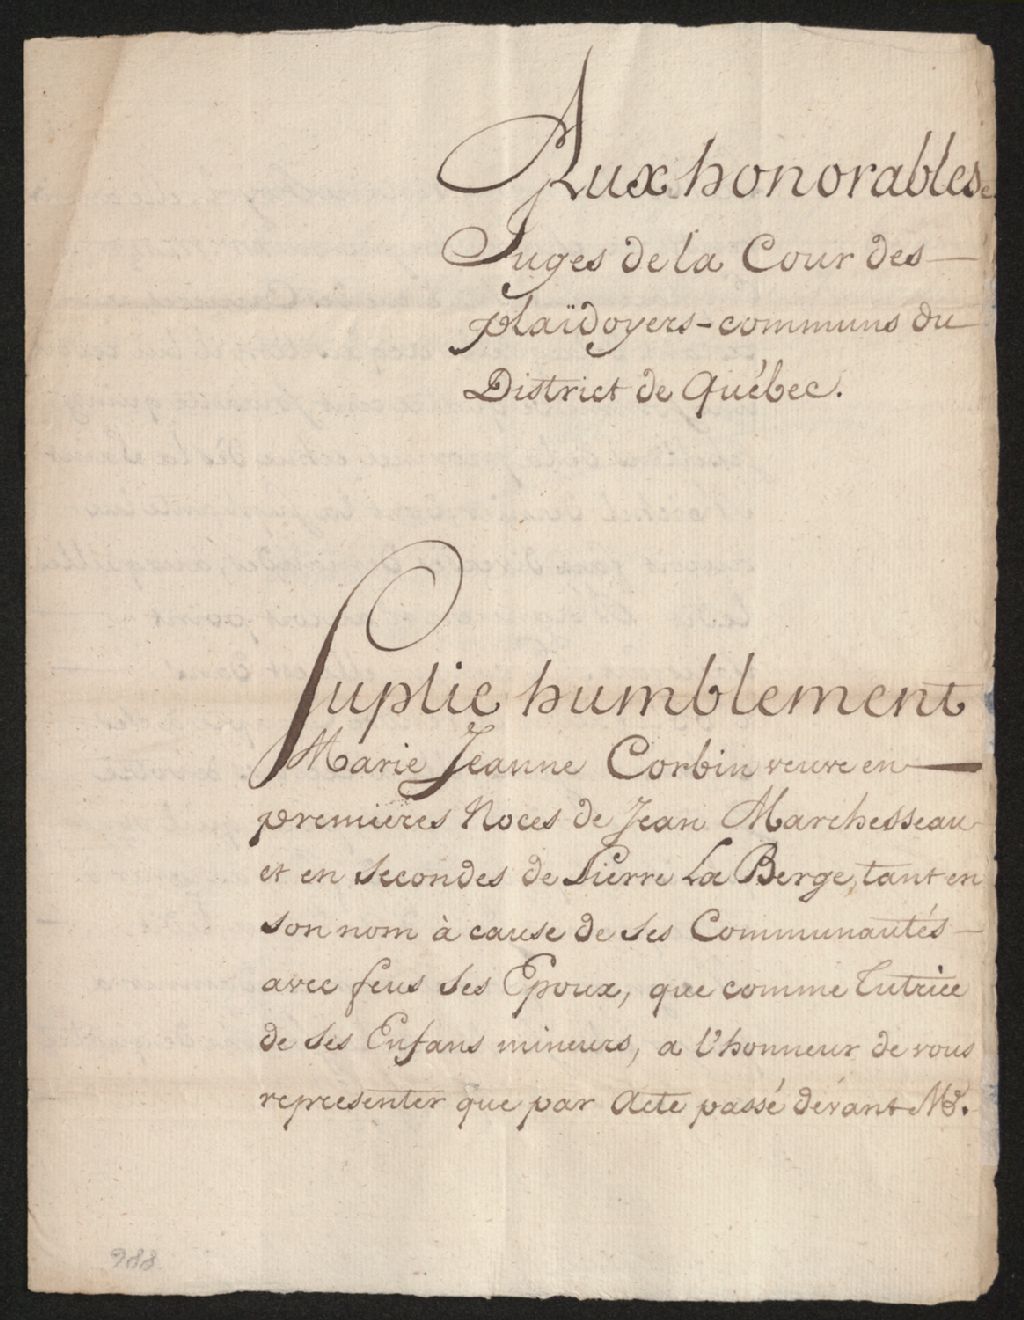 Aux honorables
Juges de la Cour des
plaïdoyers-communs du
District de Québec.
Suplie humblement
Marie Jeanne Corbin veuve en
premieres Noces de Jean Marchesseau
et en secondes de Pierre La Berge, tant en
son nom à cause de ses Communautés
avec feus ses Epoux, que comme Tutrice
de ses Enfans mineurs, a l'honneur de vous
representer que par Acte passé dévant Me.
988